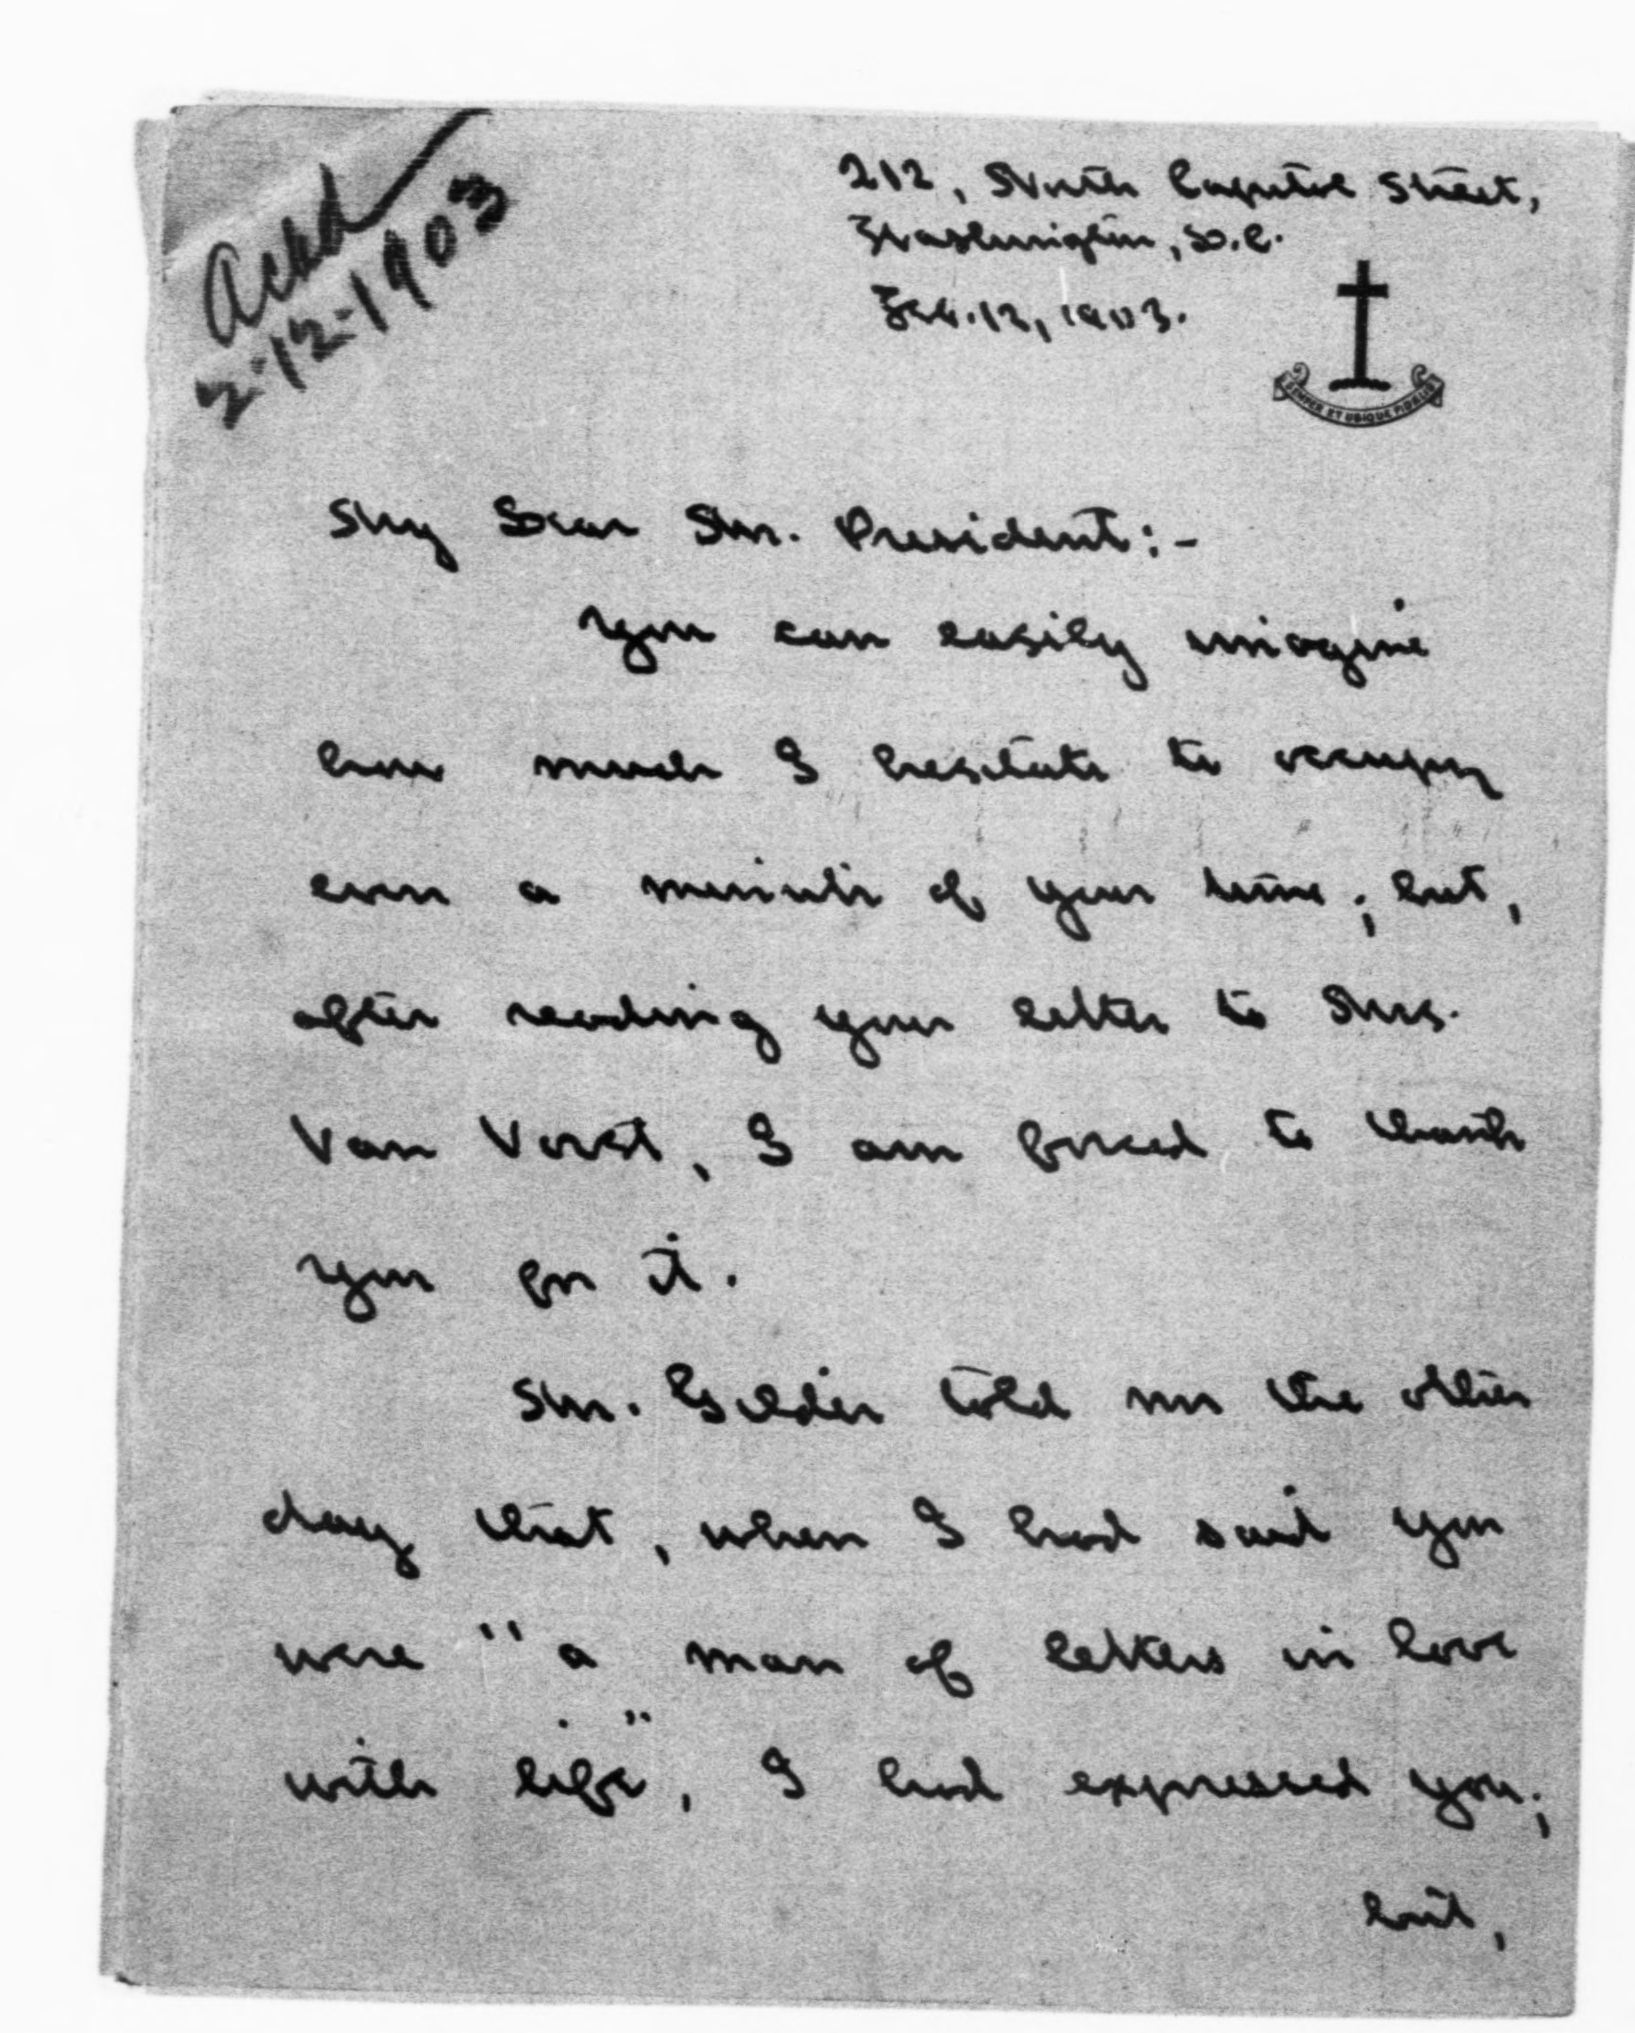 Ackd
2-12-1903
212, North Capitol Street,
Washington, D.C.
Feb. 12, 1903.
SEMPER ET UBIQUE FIDELIS
My Dear Mr. President:-
You can easily imagine
how much I hesitate to occupy
even a minute of your time; but,
after reading your letter to Mrs.
Van Vorst, I am forced to thank
you for it.
Mr. Gilder told me the other
day that, when I had said you
were "a man of letters in love
with life", I had expressed you;
but,